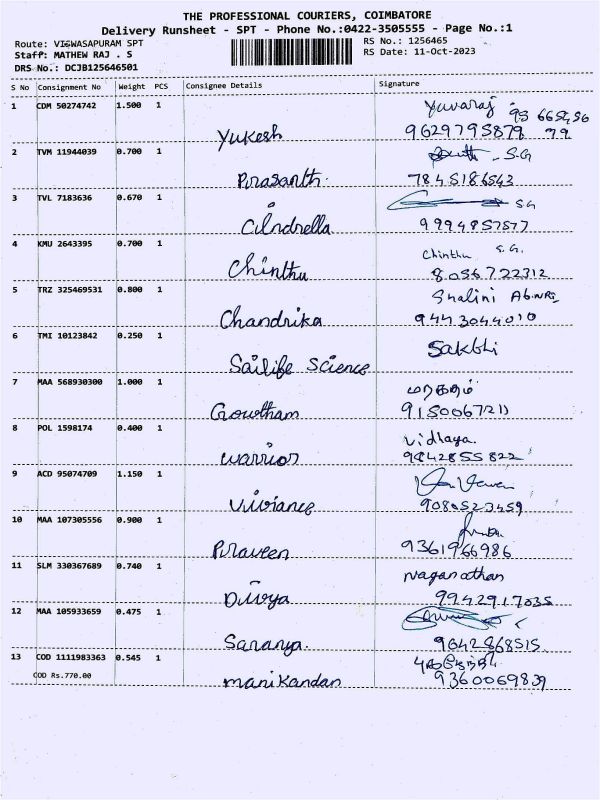 THE PROFESSIONAL COURIERS, COIMBATORE
Delivery Runsheet - SPT - Phone No.:0422-3505555 - Page No.:1
Route: VISWASAPURAM SPT
RS No.: 1256465
Staff: MATHEW RAJ . S
RS Date: 11-Oct-2023
DRS No.: DCJB125646501
S No Consignment No Weight PCS Consignee Details Signature
1 CDM 50274742 1.500 1 Yukesh Yuvaraj
2 TVM 11944039 0.700 1 Prasanth. S.G
7845186543
3 TVL 7183636 0.670 1 Cilndrella SG
9994857577
4 KMU 2643395 0.700 1 Chinthu Chinthu S.G.
8056722312
5 TRZ 325469531 0.800 1 Chandrika Shalini
9443044010
6 TMI 10123842 0.250 1 Sailife Science Sakthi
7 MAA 568930300 1.000 1 Gowtham
9150067211
8 POL 1598174 0.400 1 warrior Vidhya.
9842855822
9 ACD 95074709 1.150 1 Viviance
9080523459
10 MAA 107305556 0.900 1 Praveen
9361966986
11 SLM 330367689 0.740 1 Divya Naganathan
9942917035
12 MAA 105933659 0.475 1 Saranya.
9042868515
13 COD 1111983363 0.545 1 manikandan
COD Rs.770.00 9360069839